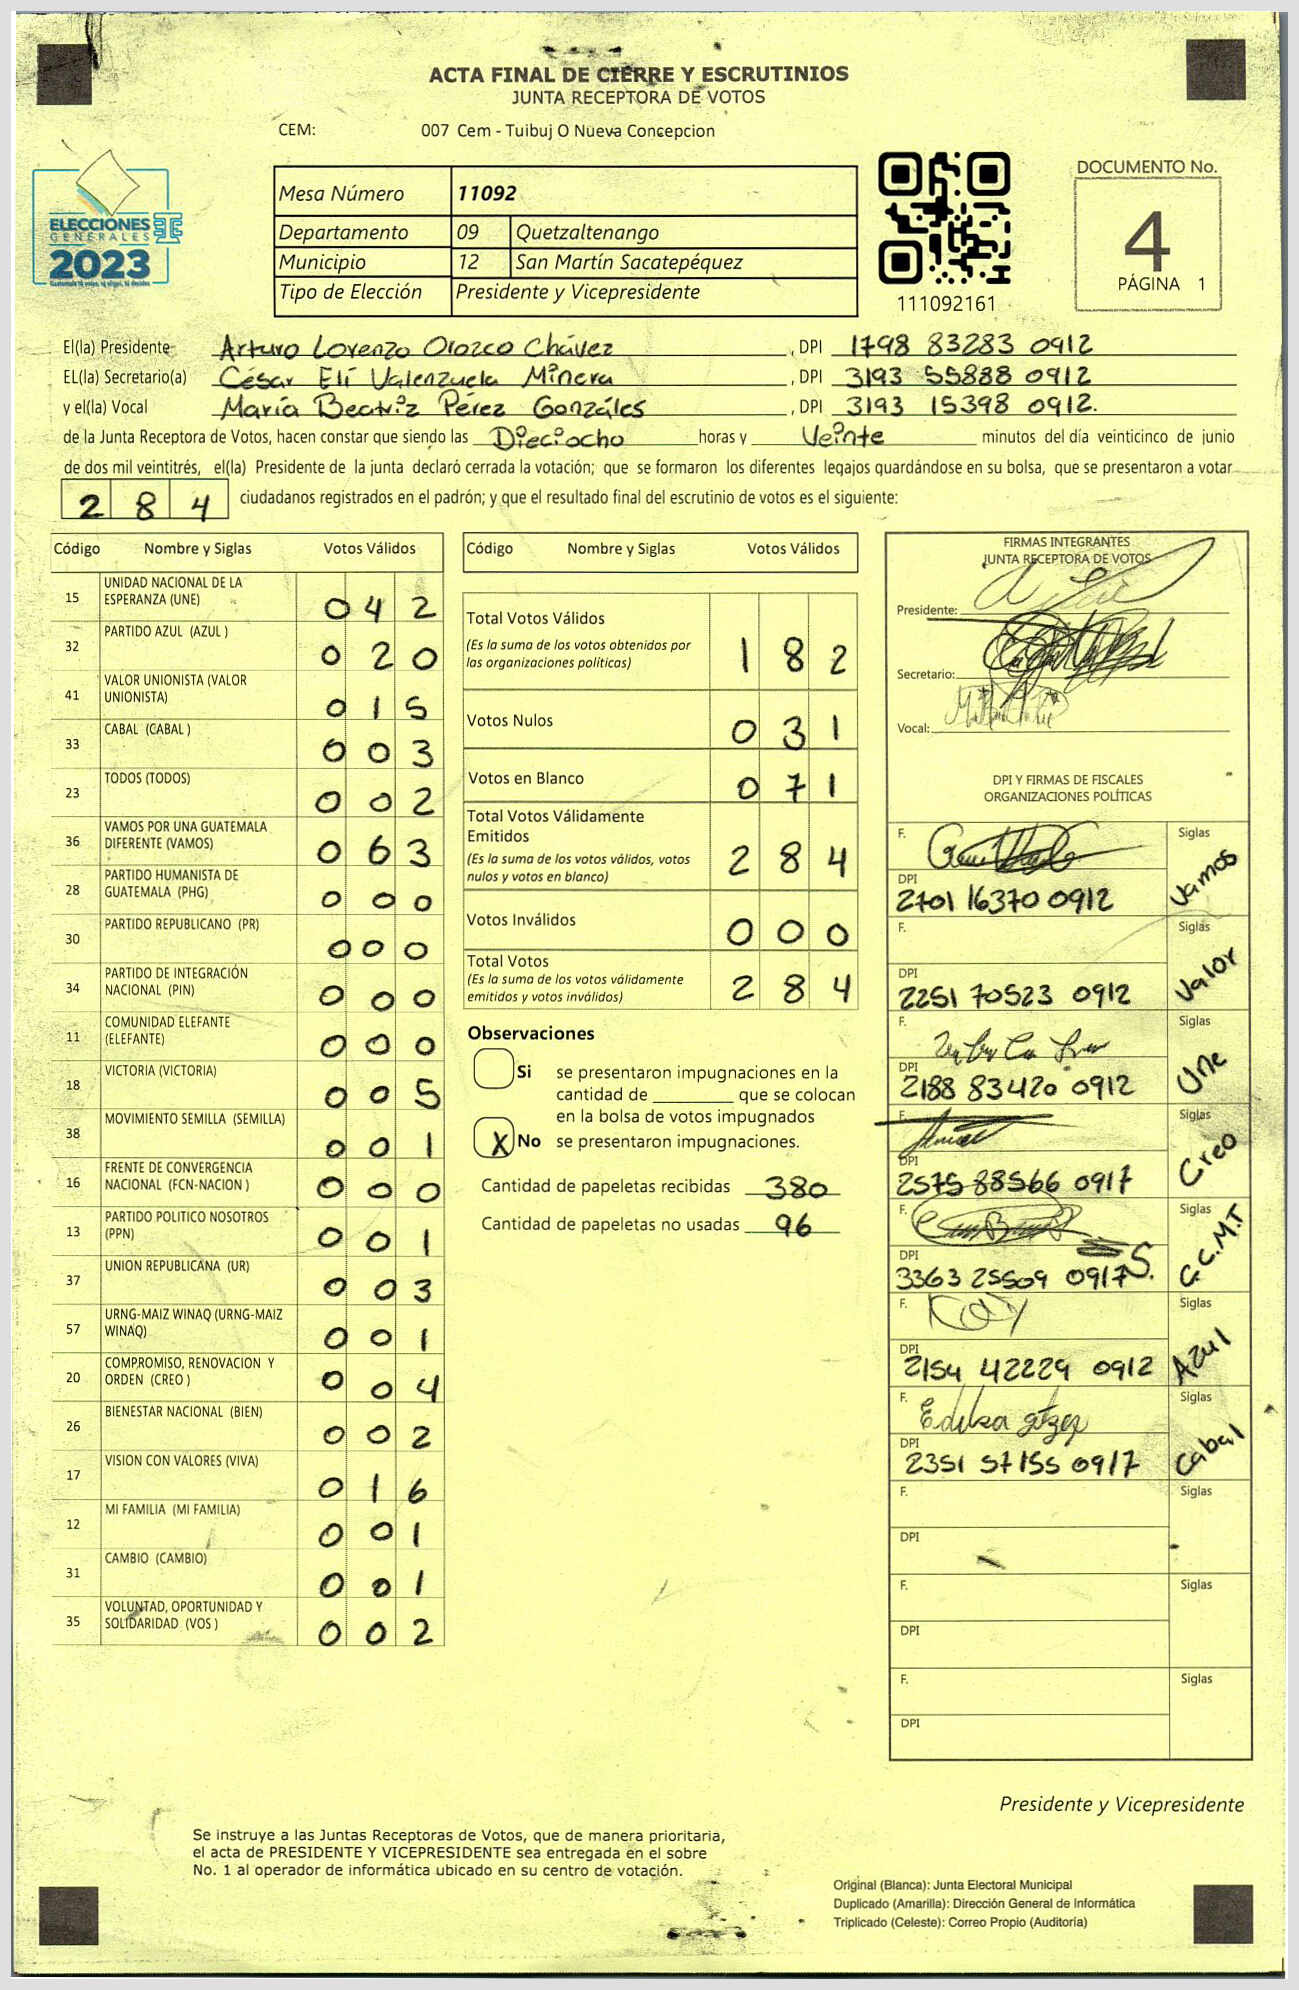 ACTA FINAL DE CIERRE Y ESCRUTINIOS
JUNTA RECEPTORA DE VOTOS
CEM: 007 Cem - Tuibuj O Nueva Concepcion
ELECCIONES
GENERALES
2023
Mesa Número 11092
Departamento 09 Quetzaltenango
Municipio 12 San Martín Sacatepéquez
Tipo de Elección Presidente y Vicepresidente
111092161
DOCUMENTO No.
4
PÁGINA 1
El(la) Presidente Arturo Lorenzo Orozco Chávez , DPI 1798 83283 0912
EL(la) Secretario(a) César Elí Valenzuela Minera , DPI 3193 55888 0912
y el(la) Vocal María Beatriz Pérez Gonzáles , DPI 3193 15398 0912.
de la Junta Receptora de Votos, hacen constar que siendo las Dieciocho horas y Veinte minutos del día veinticinco de junio
de dos mil veintitrés, el(la) Presidente de la junta declaró cerrada la votación; que se formaron los diferentes legajos quardándose en su bolsa, que se presentaron a votar
2 8 4 ciudadanos registrados en el padrón; y que el resultado final del escrutinio de votos es el siguiente:
Código Nombre y Siglas Votos Válidos
15 UNIDAD NACIONAL DE LA ESPERANZA (UNE) 0 4 2
32 PARTIDO AZUL (AZUL ) 0 2 0
41 VALOR UNIONISTA (VALOR UNIONISTA) 0 1 5
33 CABAL (CABAL ) 0 0 3
23 TODOS (TODOS) 0 0 2
36 VAMOS POR UNA GUATEMALA DIFERENTE (VAMOS) 0 6 3
28 PARTIDO HUMANISTA DE GUATEMALA (PHG) 0 0 0
30 PARTIDO REPUBLICANO (PR) 0 0 0
34 PARTIDO DE INTEGRACIÓN NACIONAL (PIN) 0 0 0
11 COMUNIDAD ELEFANTE (ELEFANTE) 0 0 0
18 VICTORIA (VICTORIA) 0 0 5
38 MOVIMIENTO SEMILLA (SEMILLA) 0 0 1
16 FRENTE DE CONVERGENCIA NACIONAL (FCN-NACION ) 0 0 0
13 PARTIDO POLITICO NOSOTROS (PPN) 0 0 1
37 UNION REPUBLICANA (UR) 0 0 3
57 URNG-MAIZ WINAQ (URNG-MAIZ WINAQ) 0 0 1
20 COMPROMISO, RENOVACION Y ORDEN (CREO ) 0 0 4
26 BIENESTAR NACIONAL (BIEN) 0 0 2
17 VISION CON VALORES (VIVA) 0 1 6
12 MI FAMILIA (MI FAMILIA) 0 0 1
31 CAMBIO (CAMBIO) 0 0 1
35 VOLUNTAD, OPORTUNIDAD Y SOLIDARIDAD (VOS ) 0 0 2
Código Nombre y Siglas Votos Válidos
Total Votos Válidos 1 8 2
(Es la suma de los votos obtenidos por
las organizaciones políticas)
Votos Nulos 0 3 1
Votos en Blanco 0 7 1
Total Votos Válidamente
Emitidos 2 8 4
(Es la suma de los votos válidos, votos
nulos y votos en blanco)
Votos Inválidos 0 0 0
Total Votos 2 8 4
(Es la suma de los votos válidamente
emitidos y votos inválidos)
Observaciones
Si se presentaron impugnaciones en la
cantidad de ________ que se colocan
en la bolsa de votos impugnados
X No se presentaron impugnaciones.
Cantidad de papeletas recibidas 380
Cantidad de papeletas no usadas 96
FIRMAS INTEGRANTES
JUNTA RECEPTORA DE VOTOS
Presidente:
Secretario:
Vocal:
DPI Y FIRMAS DE FISCALES
ORGANIZACIONES POLÍTICAS
F. Siglas
DPI
2701 16370 0912 Vamos
F. Siglas
DPI
2251 70523 0912 Valor
F. Siglas
DPI
2188 83420 0912 Une
F. Siglas
DPI
2575 88566 0917 Creo
F. Siglas
DPI
3363 25509 0917 S. G.C.M.T
F. Siglas
DPI
2154 42229 0912 Azul
F. Siglas
DPI
2351 57155 0917 Cabal
F. Siglas
DPI
F. Siglas
DPI
F. Siglas
DPI
Presidente y Vicepresidente
Se instruye a las Juntas Receptoras de Votos, que de manera prioritaria,
el acta de PRESIDENTE Y VICEPRESIDENTE sea entregada en el sobre
No. 1 al operador de informática ubicado en su centro de votación.
Original (Blanca): Junta Electoral Municipal
Duplicado (Amarilla): Dirección General de Informática
Triplicado (Celeste): Correo Propio (Auditoría)